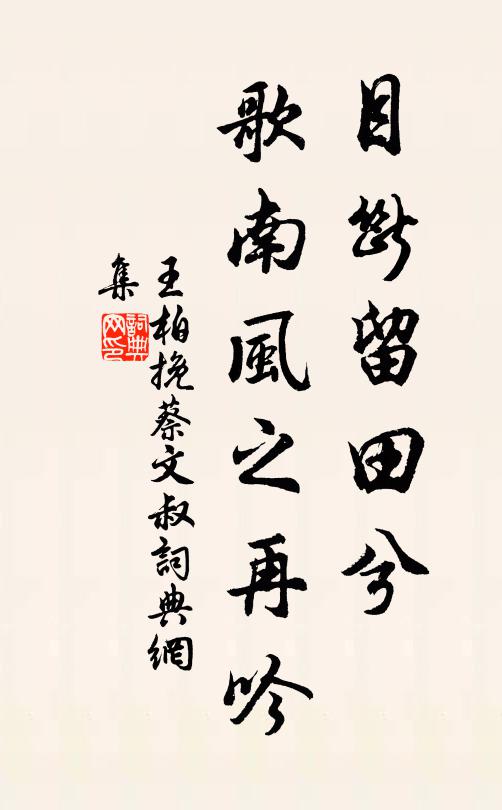 目斷留田兮
歌南風之再吟
王柏挽蔡文叔詞典網
集
詞典
網印